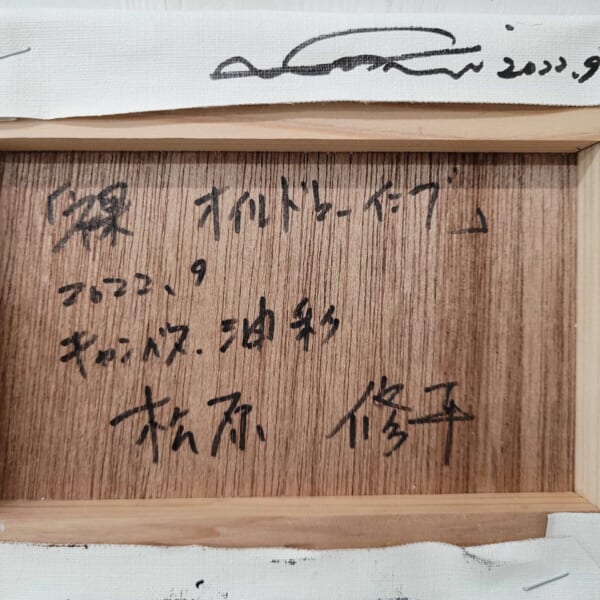 2022.9
「裸 オイルドローイング」
2022、9
キャンバス.油彩
松原 修平